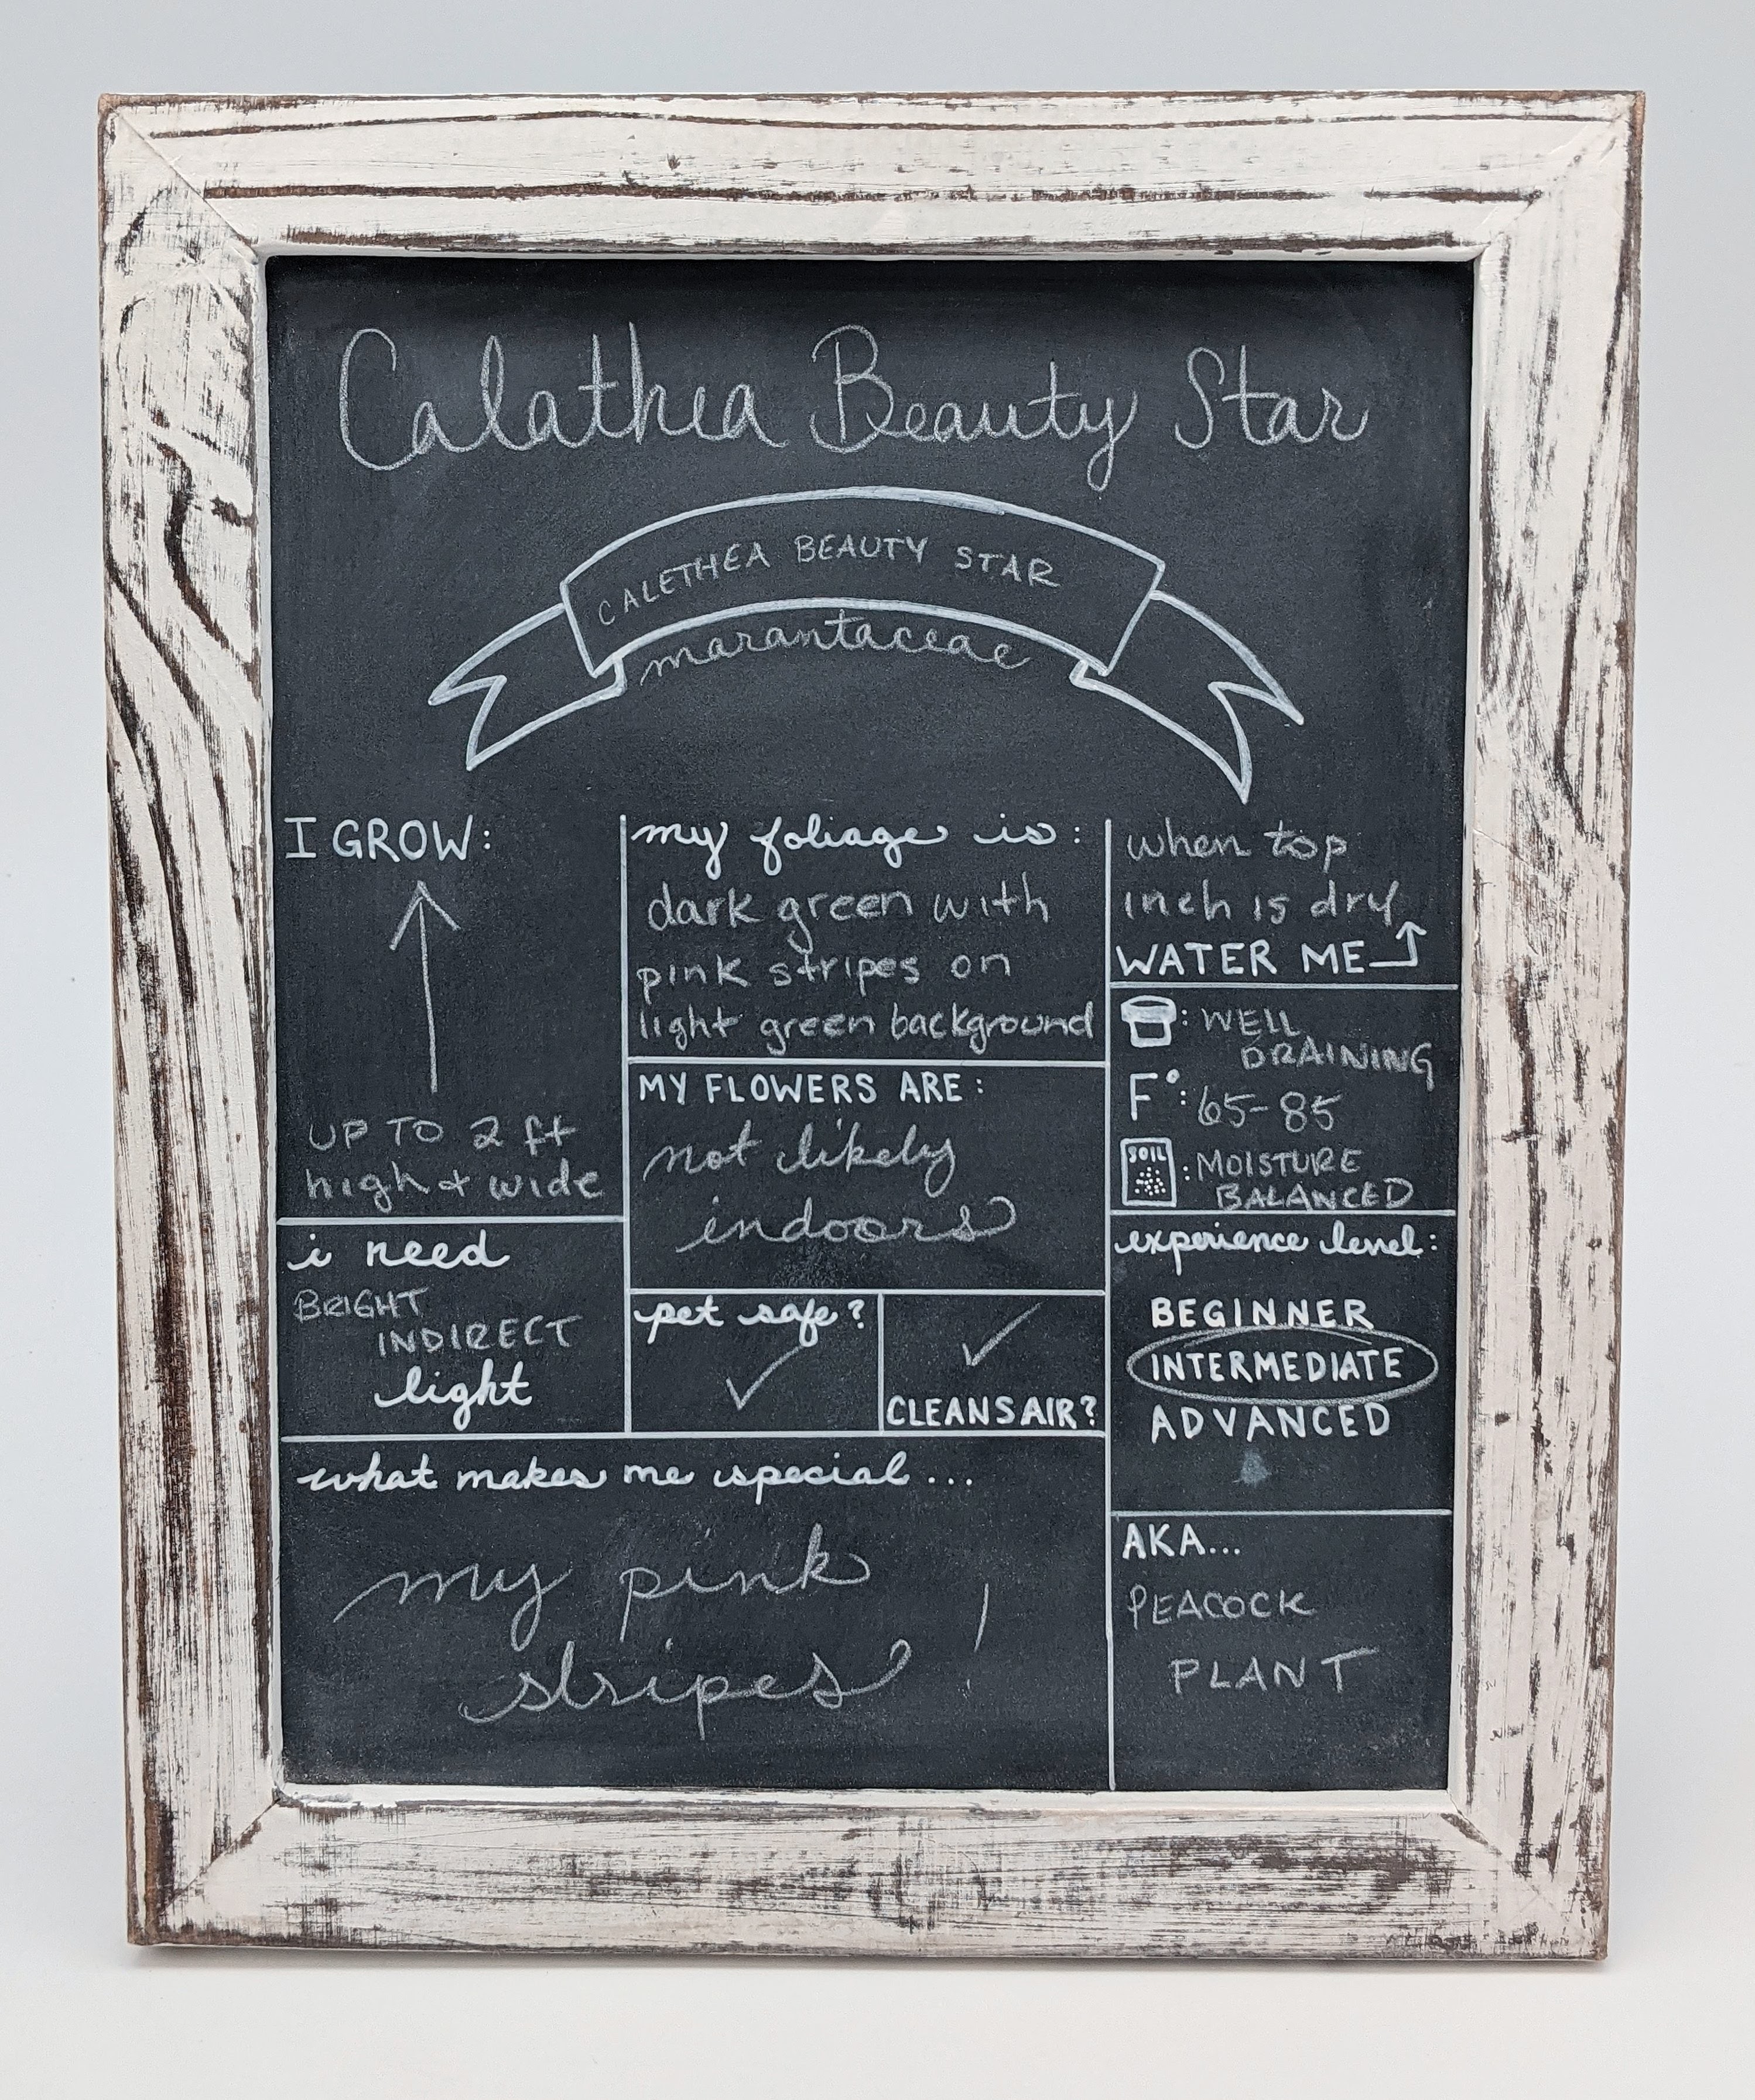 Calathea Beauty Star
CALETHEA BEAUTY STAR
marantaceae
I GROW:
UP TO 2 ft
high + wide
i need
BRIGHT
INDIRECT
light
my foliage is:
dark green with
pink stripes on
light green background
MY FLOWERS ARE:
not likely
indoors
pet safe?
✓
✓
CLEANS AIR?
what makes me special...
my pink
stripes!
when top
inch is dry
WATER ME
: WELL
DRAINING
F°: 65-85
SOIL
: MOISTURE
BALANCED
experience level:
BEGINNER
INTERMEDIATE
ADVANCED
AKA...
PEACOCK
PLANT